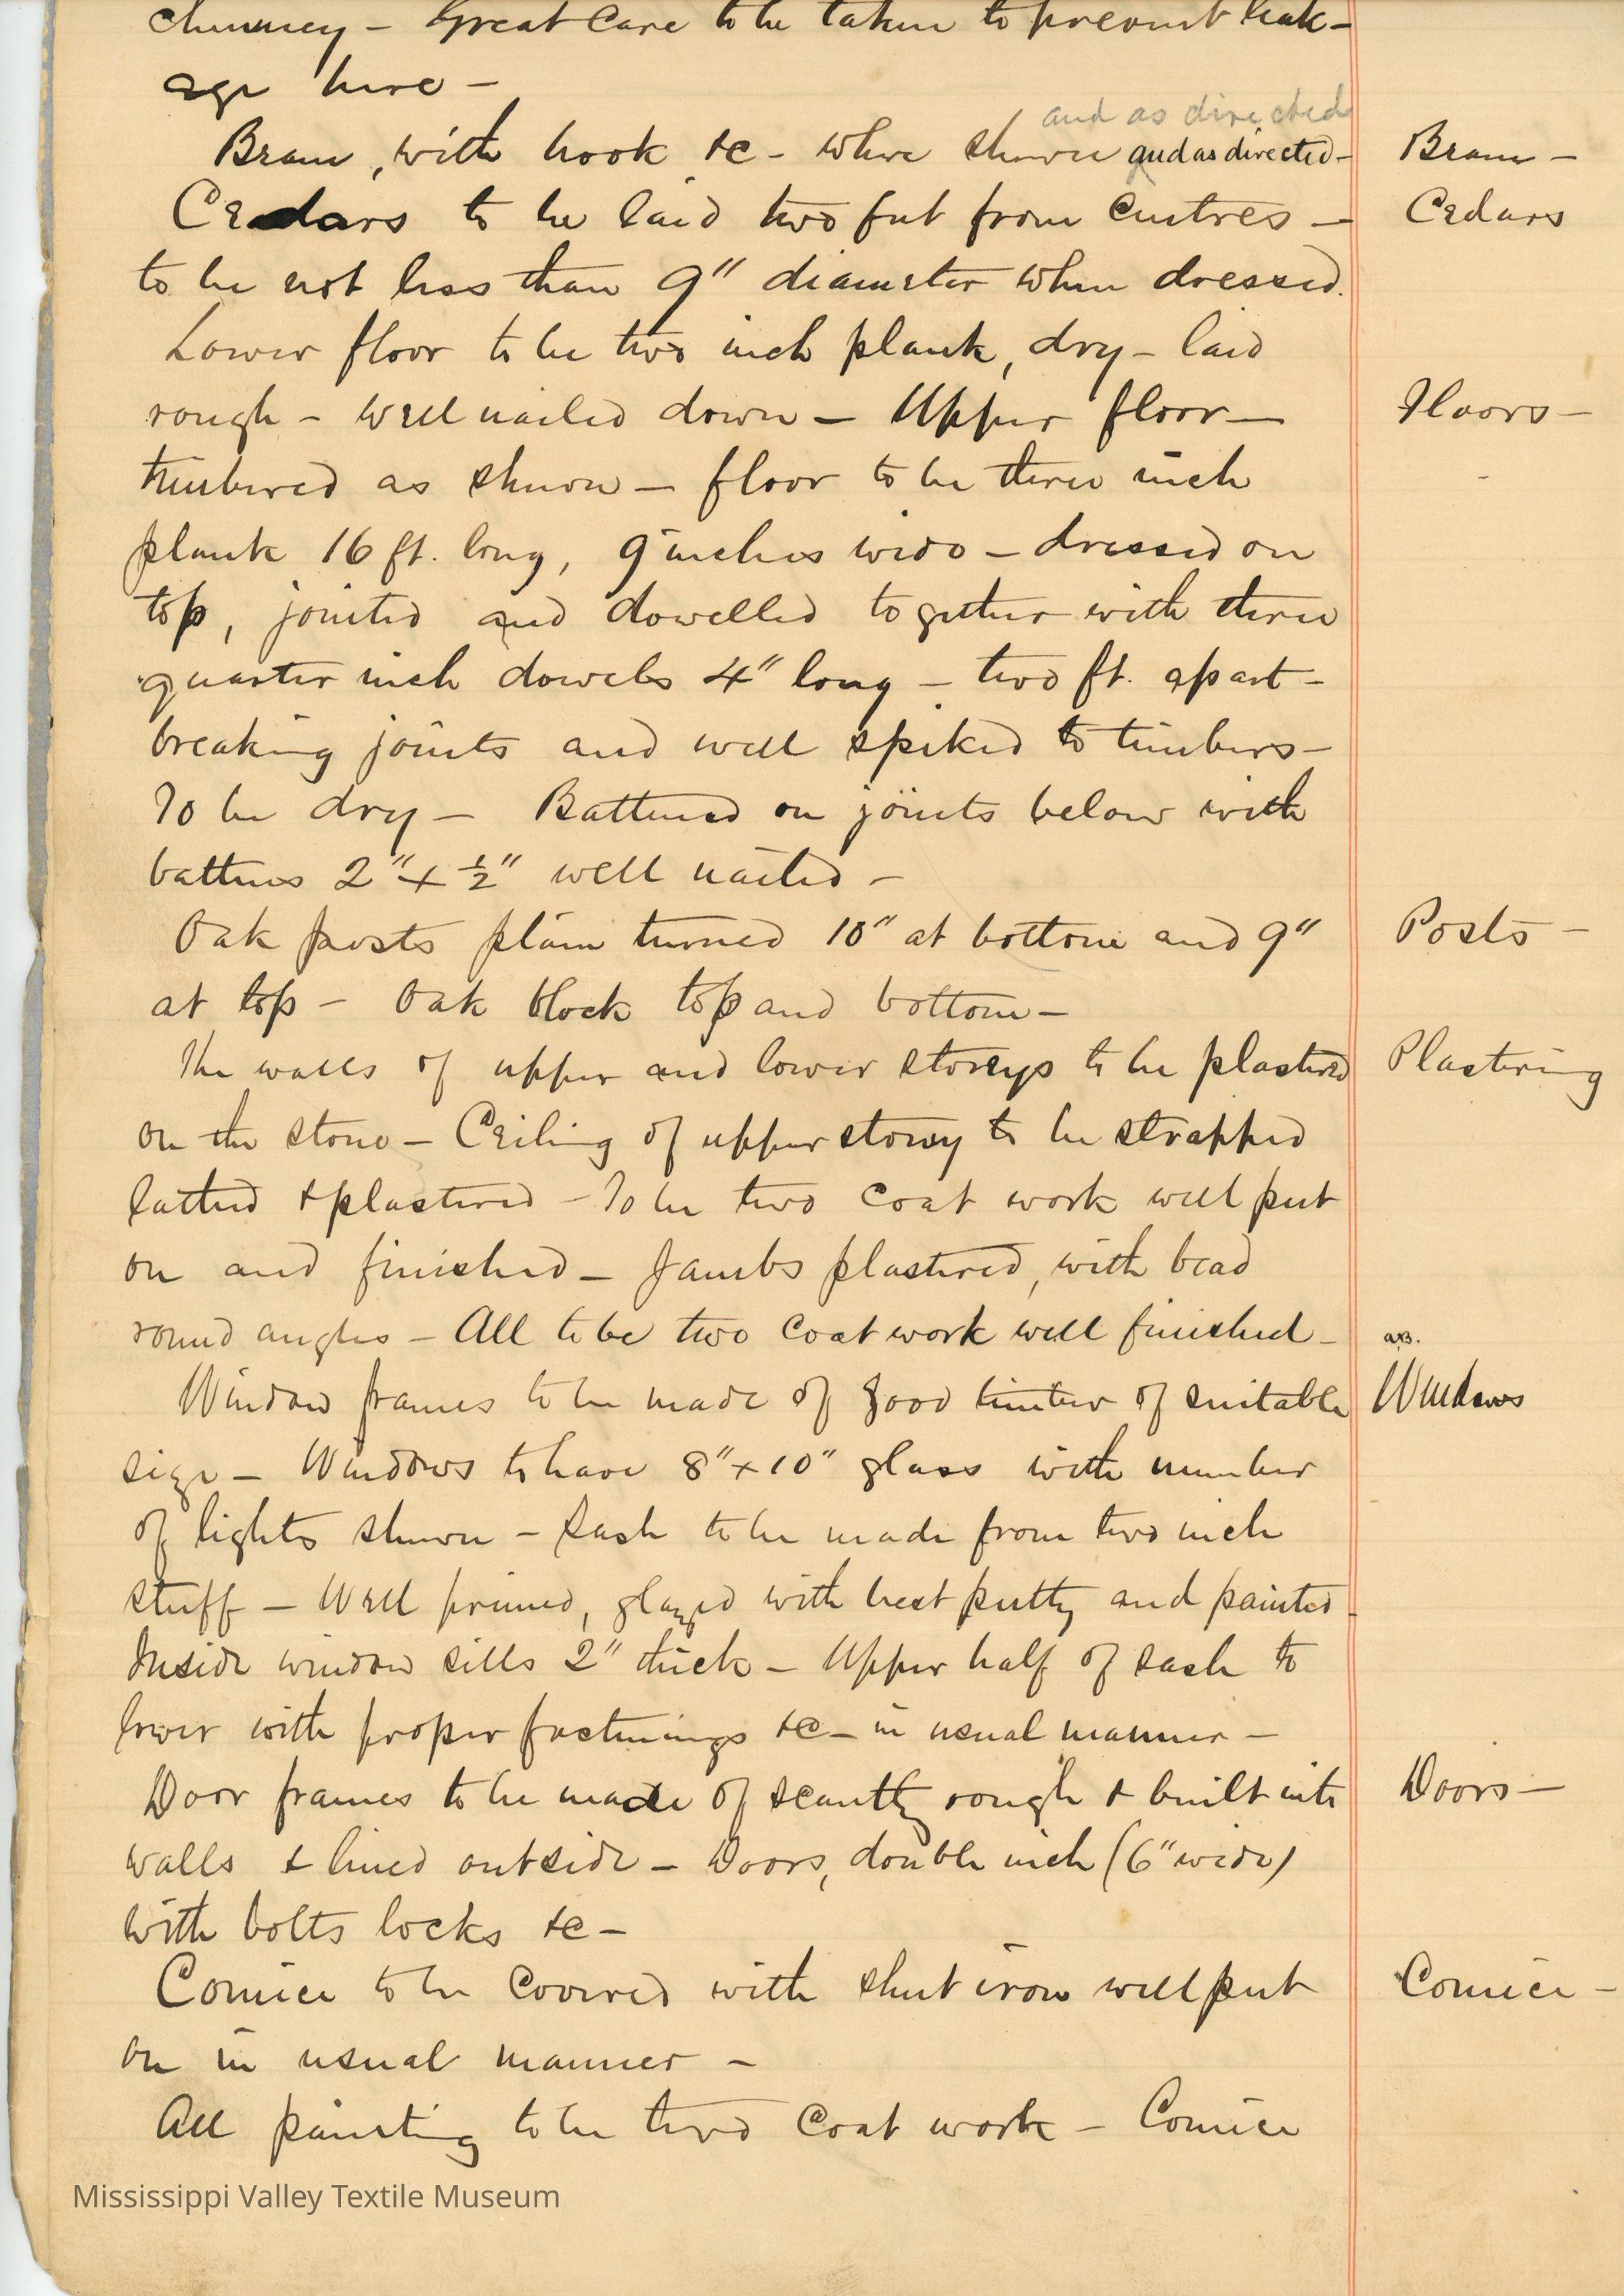 chimney – Great Care to be taken to prevent leak-
age here –
and as directed
Beam, with hook &c – where shown and as directed – Beam –
Cedars to be laid two feet from Centres – Cedars
to be not less than 9" diameter when dressed.
Lower floor to be two inch plank, dry – laid
rough – well nailed down – Upper floor – Floors –
timbered as shown – floor to be three inch
plank 16 ft. long, 9 inches wide – dressed on
top, jointed and dowelled together with three
quarter inch dowels 4" long – two ft. apart –
breaking joints and well spiked to timbers –
To be dry – Battened on joints below with
battens 2" x ½" well nailed –
Oak posts plain turned 10" at bottom and 9" Posts –
at top – Oak block top and bottom –
The walls of upper and lower storeys to be plastered Plastering
on the stone – Ceiling of upper storey to be strapped
lathed & plastered – To be two coat work well put
on and finished – Jambs plastered, with bead
round angles – All to be two coat work well finished –
Window frames to be made of good timber of suitable Windows
size – Windows to have 8" x 10" glass with number
of lights shown – Sash to be made from two inch
stuff – Well primed, glazed with best putty and painted
Inside window sills 2" thick – Upper half of sash to
lower with proper fastenings &c – in usual manner –
Door frames to be made of scantlg rough & built into Doors –
walls & lined outside – Doors, double inch (6" wide)
with bolts locks &c –
Cornice to be Covered with sheet iron well put Cornice –
on in usual manner –
All painting to be two Coat work – Cornice
Mississippi Valley Textile Museum